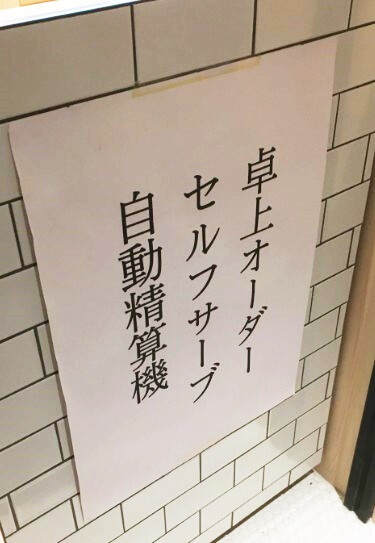 卓上オーダー
セルフサーブ
自動精算機